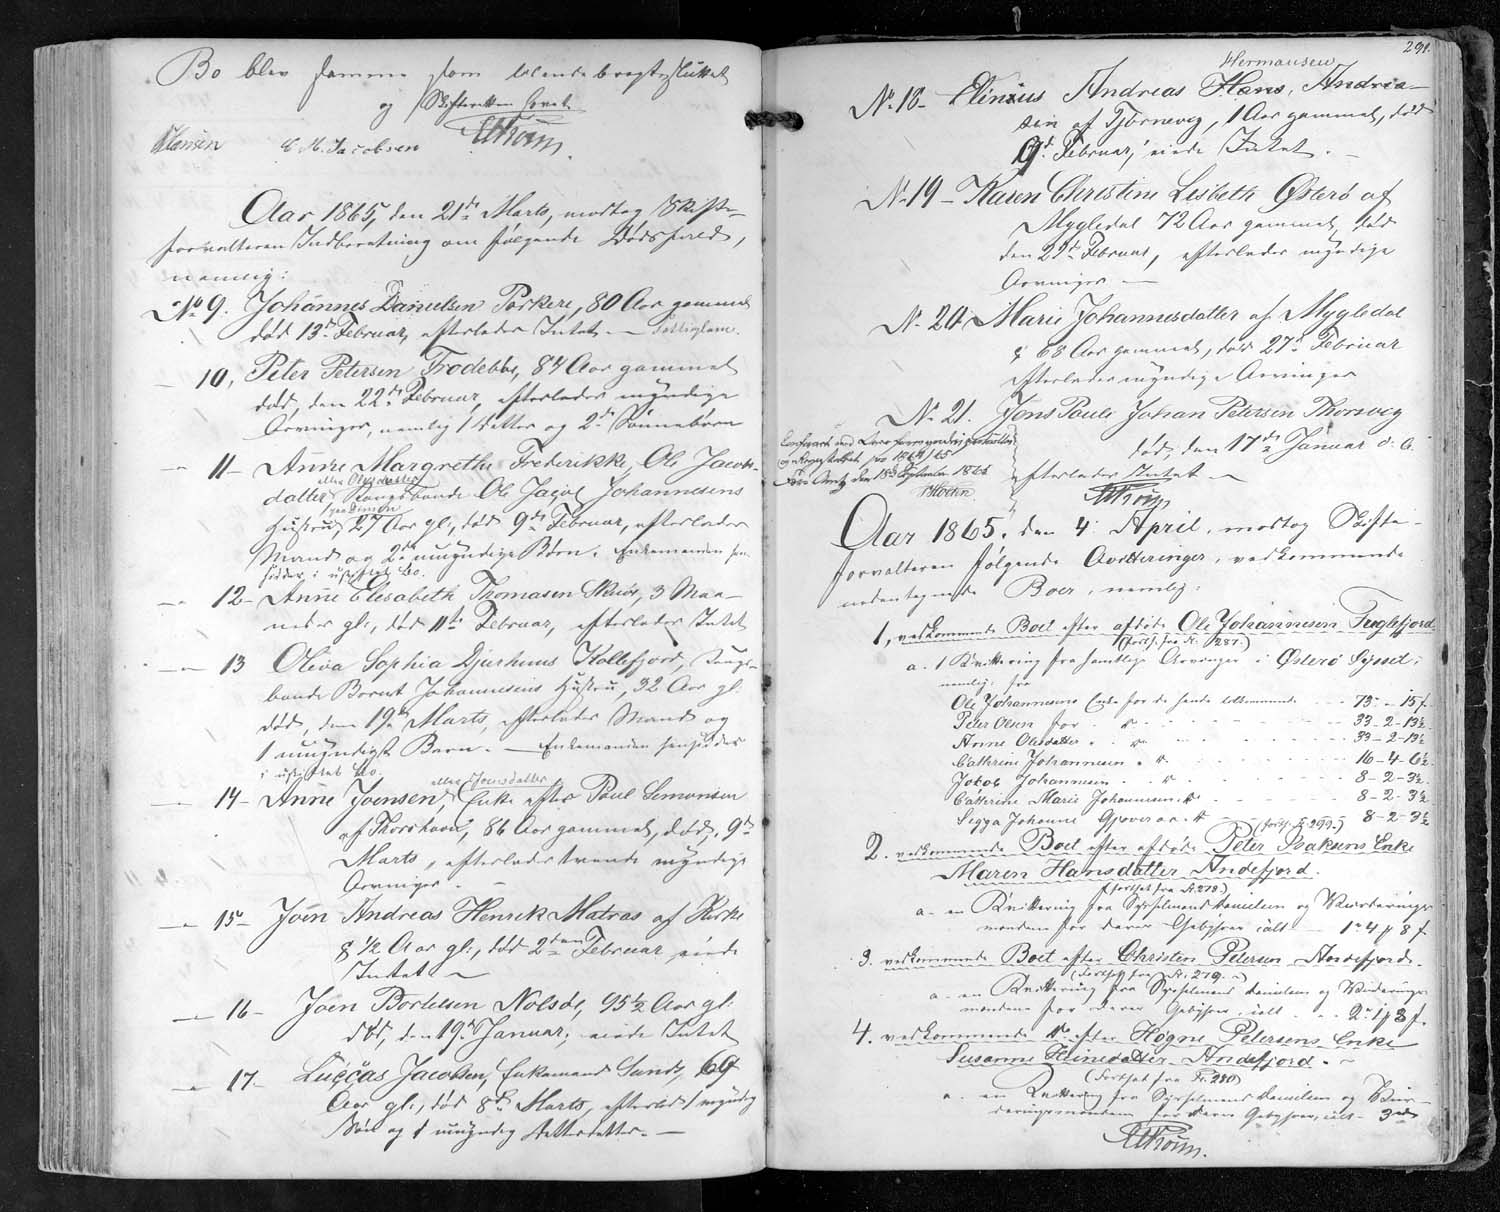 Bo blev samme som tilendebragt sluttet
og Skifteretten hævet
Hansen C. M. Jacobsen HThrom.
Aar 1865, den 21de Marts, modtog Skifte-
forvalteren Indberetning om følgende Dødsfald,
nemlig:
No 9. Johannes Danielsen Porkere, 80 Aar gammel
død 13de Februar, efterlader Intet. – Fattiglem.
— 10, Peter Petersen Frodebø, 84 Aar gammel
død, den 22de Februar, efterlader myndige
Arvinger, nemlig 1 Datter og 2de Sønnebørn
— 11 – Anne Margrethe Frederikke, Ole Jacobs-
eller Olesdatter
datter Kongsbonde Ole Jacob Johannesens
paa Dimon
Hustru, 27 Aar gl., død 9de Februar, efterlader
Mand og 2de umyndige Børn. Enkemanden hen-
sidder i uskiftet Bo.
— 12 – Anne Elisabeth Thomasen Skuør, 3 Maa-
neder gl., død 11te Februar, efterlader Intet
— 13 Oliva Sophia Djurhuus Kollefjord, Kongs-
bonde Johannesens Hustru, 32 Aar gl.
død, den 19de Marts, efterlader Mand og
1 umyndigt Barn. — Enkemanden hensidder
i uskiftet Bo.
eller Joensdatter
— 14 – Anne Joensen, Enke efter Poul Simonsen
af Thorshavn, 86 Aar gammel, død, 9de
Marts, efterlader trende myndige
Arvinger.
— 15 – Joen Andreas Henrik Matras af Kirke
8 1/2 Aar gl., død 2den Februar, eiede
Intet —
— 16 – Joen Bortelsen Nolsø, 95 1/2 Aar gl.
død, den 19de Januar, eiede Intet
— 17 – Luccas Jacobsen, Enkemand Sund, 69
Aar gl., død 8de Marts, efterlod 1 myndig
Søn og 1 umyndig Datterdatter. —
291.
Hermansen
No 18 – Elinius Andreas Hans, Andrea-
sen af Tjørnevig, 1 Aar gammel, død
19de Februar, eiede Intet. —
No 19 – Karen Christine Lisbeth Østerø af
Mygledal 72 Aar gammel, død
den 22de Februar, efterlader myndige
Arvinger —
No 20, Marie Johannesdatter af Mygledal
68 Aar gammel, død 27de Februar
efterlader myndige Arvinger
No 21. Jens Pauli Johan Petersen Thorsvig
død, den 17de Januar d. A.
efterlader Intet —
HThrom
og Registeret pro 1864/65
Færø Amt den 18de September 1866
Aar 1865. den 4. April, modtog Skifte-
forvalteren følgende Qvitteringer, vedkommende
nedentegnede Boer, nemlig:
1, vedkommende Boet efter afdøde Ole Johannesen Fuglefjord
(fortsf. fra Nr. 287.)
a. 1 Kvittering fra samtlige Arvinger i Østerø Syssel;
nemlig: fra
Ole Johannesens Enke for de hende tilkommende - - - 73 – „ – 15 f.
Peter Olsen for " - - - 33 – 2 – 13 1/2
Anne Olesdatter " " - - - 33 – 2 – 13 1/2
Cathrine Johannesen " " - - - 16 – 4 – 6 1/2
Jakob Johannesen " - - - 8 – 2 – 3 1/2
Catterine Marie Johannesen " - - - 8 – 2 – 3 1/2
Sigga Johanne Gjoveraa " - - - 8 – 2 – 3 1/2
(forts. Fo 299.)
2. vedkommende Boet efter afdøde Peter Isaksens Enke
Maren Hansdatter Andefjord.
(fortsat fra Nr. 278)
a – en Kvittering fra Sysselmand Danielsen og Vurderings-
mændene for deres Gebyhrer ialt — 1 rd 4 # 8 f.
3. vedkommende Boet efter Christen Petersen Andefjord.
(fortsat fra Nr. 279.)
a – en Kvittering fra Sysselmand Danielsen og Vurderings-
mændene for deres Gebyhrer, ialt - - 2 rd 1 # 8 f.
4. vedkommende Do efter Høgne Petersens Enke
Susanne Heinesdatter Andefjord. —
(Fortsat fra Fr. 280)
a. en Kvittering fra Sysselmand Danielsen og Vur-
deringsmændene for deres Gebyhrer, ialt – 3 rd
HThrom.